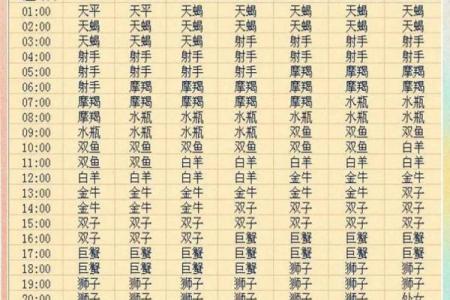 01:00 天平 天蝎 天蝎 天蝎 天蝎 天蝎 天蝎
02:00 天蝎 天蝎 天蝎 天蝎 天蝎 天蝎 天蝎
03:00 天蝎 天蝎 天蝎 射手 射手 射手 射手
04:00 射手 射手 射手 射手 射手 射手 射手
05:00 射手 射手 射手 射手 射手 摩羯 摩羯
06:00 射手 摩羯 摩羯 摩羯 摩羯 摩羯 摩羯
07:00 摩羯 摩羯 摩羯 摩羯 摩羯 水瓶 水瓶
08:00 摩羯 水瓶 水瓶 水瓶 水瓶 水瓶 水瓶
09:00 水瓶 水瓶 水瓶 水瓶 双鱼 双鱼 双鱼
10:00 双鱼 双鱼 双鱼 双鱼 双鱼 双鱼 白羊
11:00 双鱼 双鱼 白羊 白羊 白羊 白羊 白羊
12:00 白羊 白羊 白羊 白羊 金牛 金牛 金牛
13:00 金牛 金牛 金牛 金牛 金牛 金牛 双子
14:00 金牛 金牛 双子 双子 双子 双子 双子
15:00 双子 双子 双子 双子 双子 双子 巨蟹
16:00 双子 双子 双子 巨蟹 巨蟹 巨蟹 巨蟹
17:00 巨蟹 巨蟹 巨蟹 巨蟹 巨蟹 巨蟹 巨蟹
18:00 巨蟹 巨蟹 巨蟹 巨蟹 狮子 狮子 狮子
19:00 狮子 狮子 狮子 狮子 狮子 狮子 狮子